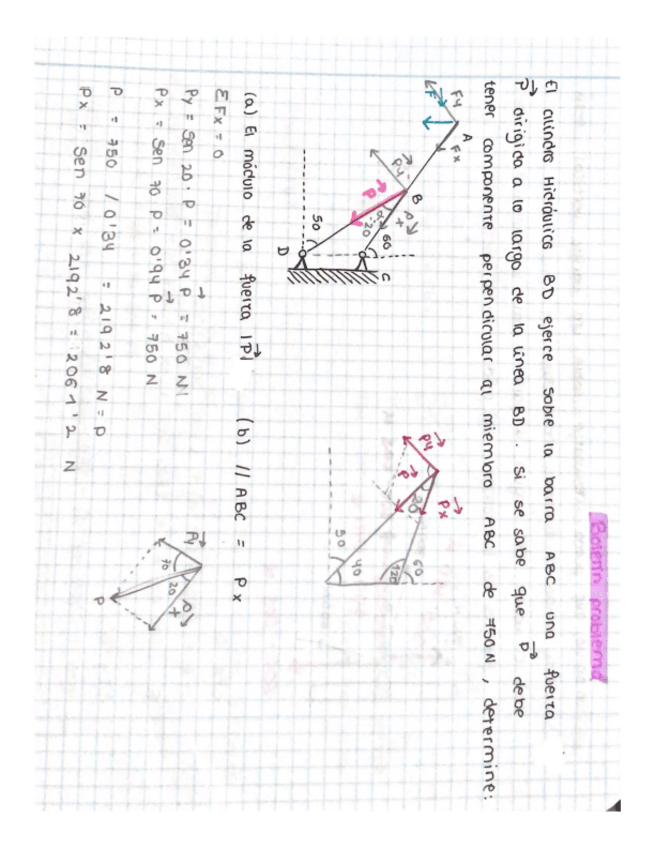 Boletín problema
El cilindro Hidráulico BD ejerce sobre la barra ABC una fuerza
P dirigida a lo largo de la línea BD. Si se sabe que P debe
tener componente perpendicular al miembro ABC de 750 N, determine:
A
Fy
Fx
F
B
Py
Px
P
α
20
60
50
D
C
Py
Px
P
20
60
120
40
50
(a) El módulo de la fuerza |P|
(b) // ABC = Px
ΣFx = 0
Py = Sen 20 · P = 0'34 P = 750 N
Px = Sen 70 P = 0'94 P = 750 N
P = 750 / 0'34 = 2192'8 N = P
Px = Sen 70 x 2192'8 = 2061'2 N
Py
70
20
P
x
P